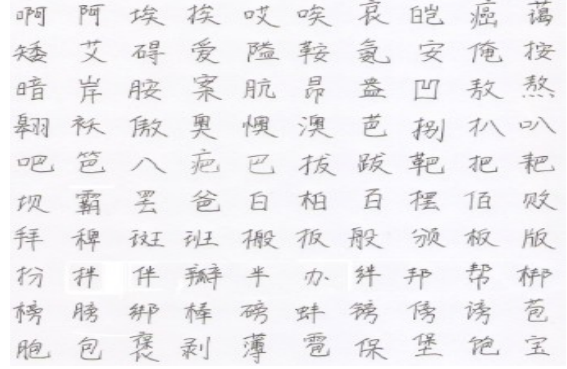 啊 阿 埃 挨 哎 唉 哀 皑 癌 蔼
矮 艾 碍 爱 隘 鞍 氨 安 俺 按
暗 岸 胺 案 肮 昂 盎 凹 敖 熬
翱 袄 傲 奥 懊 澳 芭 捌 扒 叭
吧 笆 八 疤 巴 拔 跋 靶 把 耙
坝 霸 罢 爸 白 柏 百 摆 佰 败
拜 稗 斑 班 搬 扳 般 颁 板 版
扮 拌 伴 瓣 半 办 绊 邦 帮 梆
榜 膀 绑 棒 磅 蚌 镑 傍 谤 苞
胞 包 褒 剥 薄 雹 保 堡 饱 宝